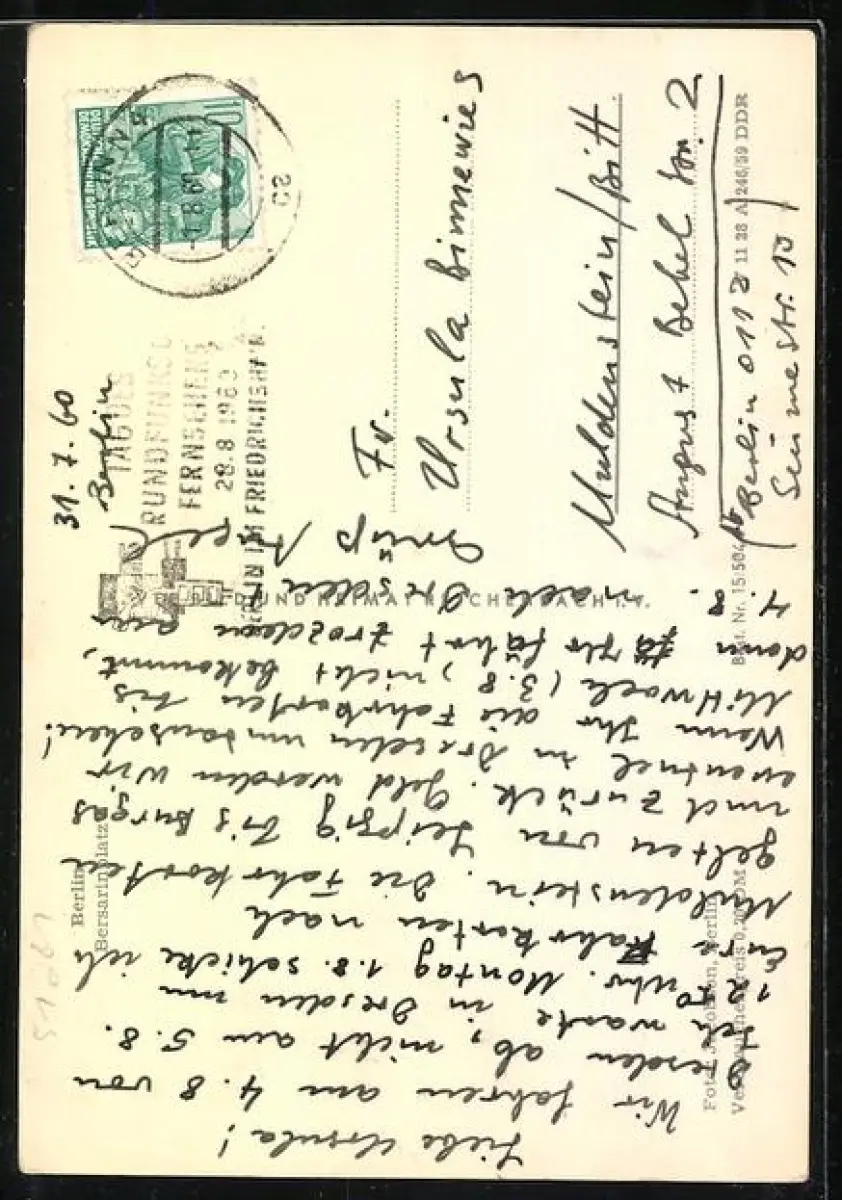 31.7.60
Berlin
Liebe Ursula!
Wir fahren am 4.8 von
Dresden ab, nicht am 5.8.
Ich warte in Dresden um
12⁵⁰ Uhr. Montag 1.8. schicke ich
Eure Fahrkarten nach
Muldenstein. Die Fahrkarten
gelten von Leipzig bis Burgas
und zurück. Geld werden wir
eventuel in Dresden umtauschen!
Wenn Ihr die Fahrkarten bis
Mittwoch (3.8) nicht bekommt,
dann fährt Ihr trozdem am
4.8. nach Dresden
Gruß
Fr.
Ursula Binnewies
Muldenstein/Bitt.
August Bebel Str. 2
Berlin 0112
10
10
-1.8.60
TAG DES
RUNDFUNKS U
FERNSEHENS
28.8 1960
BERLIN IM FRIEDRICHSHAIN
BILD UND HEIMAT REICHENBACH I.V.
Berlin
Bersarinplatz
Foto: Berlin
Verbraucherpreis 0,20 DM
Best. Nr. 15/504
11 28 A/246/59 DDR